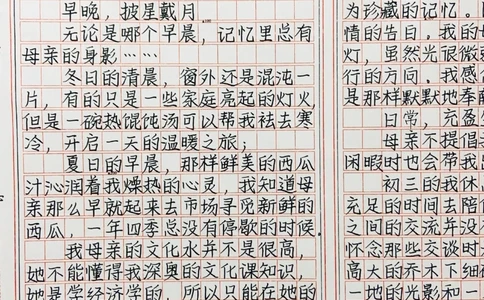 早晚，披星戴月
无论是哪个早晨，记忆里总有
母亲的身影……
冬日的清晨，窗外还是混沌一
片，有的只是一些家庭亮起的灯火，
但是一碗热馄饨汤可以帮我祛去寒
冷，开启一天的温暖之旅；
夏日的早晨，那样鲜美的西瓜
汁沁润着我燥热的心灵，我知道母
亲那么早就起来去市场寻觅新鲜的
西瓜，一年四季总没有停歇的时候.
我母亲的文化水并不是很高，
她不能懂得我深奥的文化课知识，
她是学经济学的，所以只能在她的
为珍藏的记忆。
情的告白，我的母
灯，虽然光很微弱
行的方向。我感
是那样默默地奉献
日常，充盈
母亲不提倡
闲暇时也会带我
初三的我休
充足的时间去陪
之间的交流并没
怀念那些交谈时
高大的乔木下细
一地的光影和一